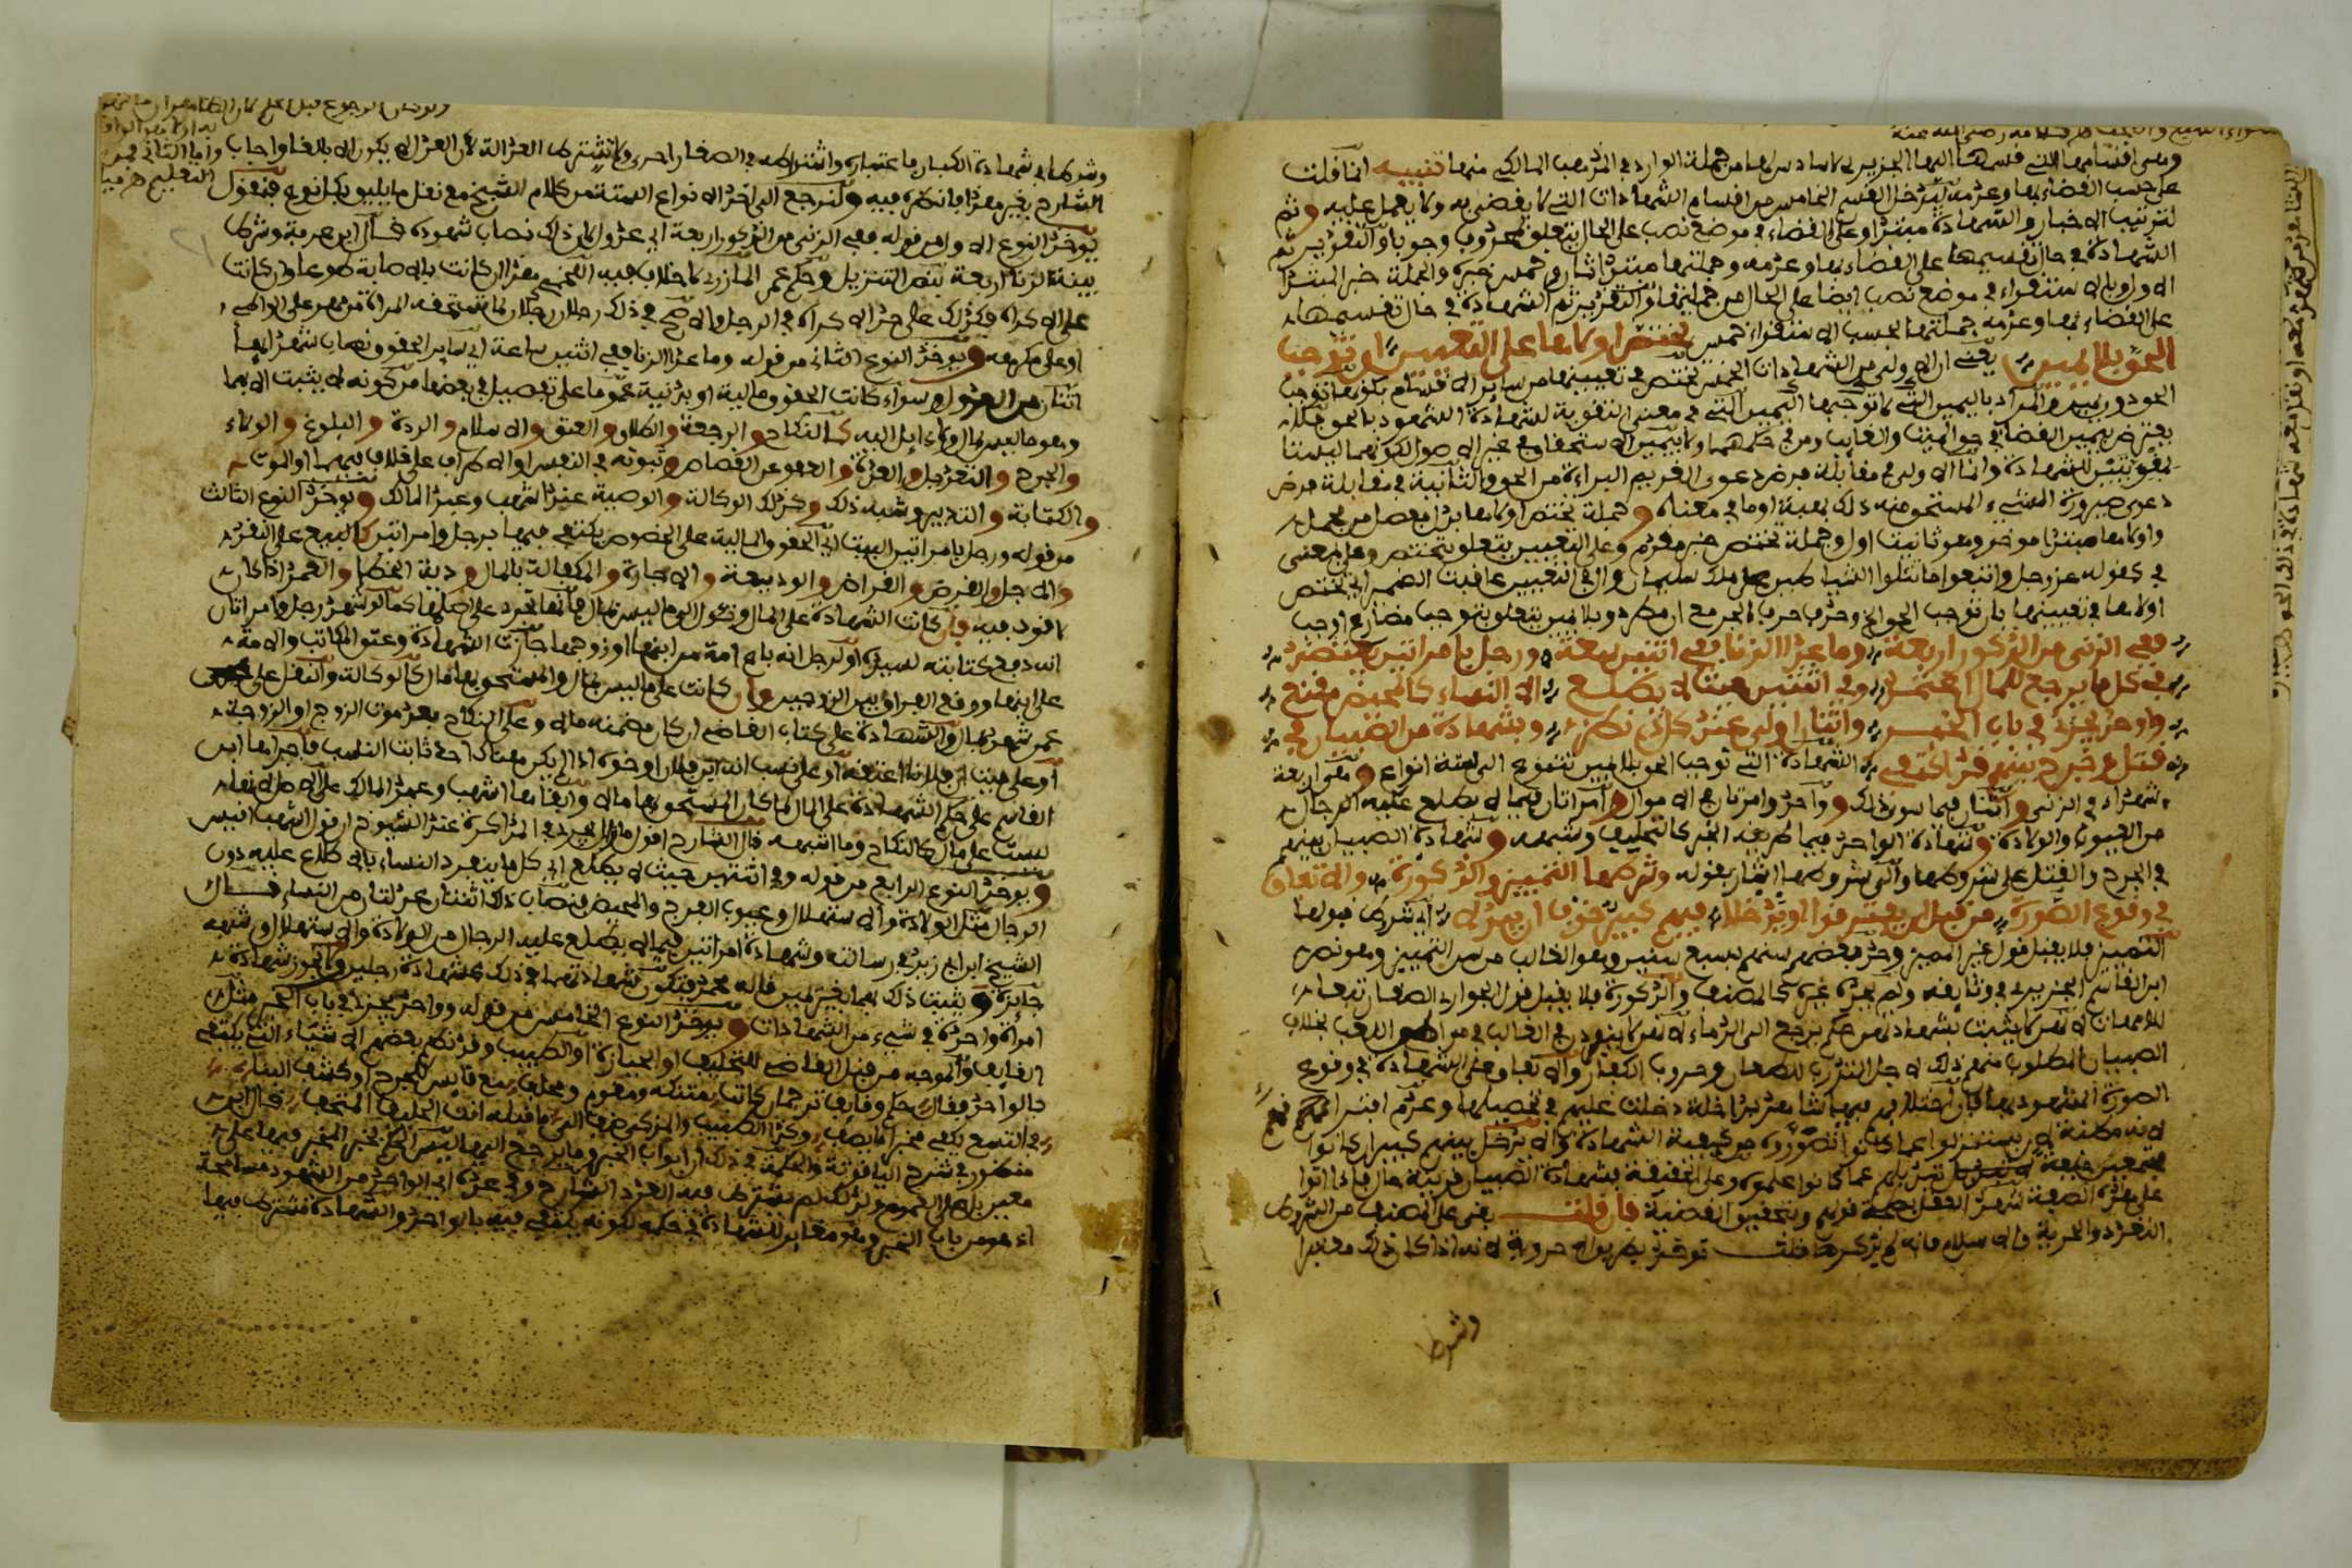 وهي اقسامها التي قسمها اليها الجزيري لا سادس لها من جملة الوارد في المذهب المالكي منها تنبيه انما قلت
على حسب القضاء بها وعدمه ليدخل القسم الخامس من اقسام الشهادات التي لا يقضى به ولا يعمل عليه وثم
لترتيب الاخبار والشهادة مبتدا وعلى القضاء في موضع نصب على الحال يتعلق بمحذوف وجوبا والتقدير ثم
الشهادة في حال تقسيمها على القضاء بها وعدمه وجملتها مبتدا ثان وخمس خبره والجملة خبر المبتدا
الاول وبالاستقراء في موضع نصب ايضا على الحال من جملتها والتقدير ثم الشهادة في حال تقسيمها
على القضاء بها وعدمه جملتها بحسب الاستقراء خمس تختص اولاها على التعيين ان توجبا
الحق بلا يمين يعني ان الاولى من الشهادات الخمس تختص في تعيينها من سائر الاقسام بكونها توجب
الحق دون يمين والمراد باليمين التي لا توجبها اليمين التي في معنى التقوية للشهادة المشهود بالحق فلا
يعترض بيمين القضاء في حق الميت والغايب ومن في حكمهما ولا بيمين الاستحقاق في غير الاصول لكونهما ليستا
بمقويتين للشهادة وانما الاولى في مقابلة فرض دعوى الغريم البراءة من الحق والثانية في مقابلة فرض
دعوى صيرورة الشيء المستحق منه ذلك بهبة او ما في معناه وجملة تختص اولاها بدل مفصل من مجمل
واولاها مبتدا موخر وهو ثانيت اول وجملة تختص خبر مقدم وعلى التعيين يتعلق بتختص وعلى بمعنى
في كقوله عز وجل واتبعوا ما تتلوا الشياطين على ملك سليمان وال في التعيين عاقبت الضمير اي تختص
اولاها في تعيينها بان توجب الحق الخ وحذف حرف الجر مع ان مطرد وبلا يمين يتعلق بتوجب مضارع اوجب
ففي الزنى من الذكور اربعة وما عدا الزنا ففي اثنين سعة ورجل بامراتين يعتضد
في كل ما يرجع للمال اعتمد وفي اثنتين حيث لا يطلع الا النساء كالمحيض مقنع
وواحد يجزئ في باب الخبر واثنان اولى عند كل ذي نظر وبشهادة من الصبيان في
قتل وجرح بينهم قد اكتفي الشهادة التي توجب الحق بلا يمين تتنوع الى ستة انواع وهي اربعة
شهداء في الزنى واثنان فيما سوى ذلك وواحد وامرتان في الاموال وامراتان فيما لا يطلع عليه الرجال
من العيوب والولادة وشهادة الواحد فيما طريقه الخبر كالتحليف وشبهه وشهادة الصبيان بينهم
في الجرح والقتل على شروطها والى شروطها اشار بقوله وشرطها التمييز والذكورة والاتفاق
في وقوع الصورة من قبل ان يفترقوا او يدخلا فيهم كبير خوف ان يبدلا اي شرط قبولها
التمييز فلا يقبل قول غير المميز وحد بعضهم سنهم بسبع سنين وهو الغالب من سن التمييز وهو نص
ابن القاسم الجزيري في وثايقه ولم يحده غيره كالمصنف والذكورة فلا يقبل قول الجواري الصغار تبعا
للامهات لانهن لا يثبت بشهادتهن حكم يرجع الى الدماء لانهن لا ينفردن في الغالب في مواضع اللعب بخلاف
الصبيان المطلوب منهم ذلك لاجل التدرب للطعان وحروب الكفار والاتفاق على الشهادة في وقوع
الصورة المشهود بها فان اختلافهم فيما شاهدوا داخلة دخلت عليهم في تحصيلها وعدم افتراقهم
لانه مظنة ان يستنزلوا عما كانوا تصوروه من كيفية الشهادة والا يدخل بينهم كبير ان كانوا
مجتمعين خيفة تبديلهم عما كانوا علموه وعلى الحقيقة بشهادة الصبيان قرينة حال فاذا اتوا
على هذه الصفة شهد العقل بصحة قولهم وبتحقيق القضية فان قلت بقي على المصنف من الشروط
التعدد والحرية والاسلام فانه لم يذكرها قلت توخذ بطريق الاحروية لانه اذا كان ذلك معتبرا
وشرط
وشرطا في شهادة الكبار فاعتباره واشتراطه في الصغار احرى ولا تشترط العدالة لان العدل لا يكون الا بالغا واجاب
الشارح بغير هذا فانظره فيه ولنرجع الى اخذ الانواع الستة من كلام الشيخ مع نقل ما يليق بكل نوع فنقول
يوخذ النوع الاول من قوله ففي الزنى من الذكور اربعة اي عدول لان ذلك نصاب شهوده قال ابن عرفة وشرط
بينة الزنا اربعة بنص التنزيل وحكى عن المازري لا خلاف فيه اللخمي هذا ان كانت بالاصابة طوعا وان كانت
على الاكراه فكذلك على حد الاكراه في الرجل والاصح في ذلك رجلان رجلان لما تستحقه المراة من مهر على الواطئ
او على مكرهه ويوخذ النوع الثاني من قوله وما عدا الزنا ففي اثنين سعة اي سائر الحقوق ونصاب شهدائها
اثنان من العدول سواء كانت الحقوق مالية او بدنية عموما على تفصيل في بعضها من كونه لا يثبت الا بهما
وهو ما ليس بمال ولا ءايل اليه كالنكاح والرجعة والطلاق والعتق والاسلام والردة والبلوغ والولاء
والجرح والتعديل والعدة والعفو عن القصاص وثبوته في النفس او الاطراف على خلاف فيهما والموت
والكتابة والتدبير وشبه ذلك وكذلك الوكالة والوصية عند اشهب وعبد المالك ويوخذ النوع الثالث
من قوله ورجل بامراتين البيت اي الحقوق المالية على الخصوص يكتفى فيها برجل وامراتين كالبيع على النقد
والاجل والقرض والقراض والوديعة والاجارة والكفالة بالمال ودية الخطا والعمد اذا كان
لا قود فيه فان كانت الشهادة على المال وتئول الى ما ليس بمال فانها تجرد على اصلها كما لو شهد رجل وامراتان
انه دفع كتابته لسيده او لرجل انه باع امة من ابنها او زوجها جازت الشهادة وعتق المكاتب والامة
على ابنها ووقع الفراق بين الزوجين وان كانت على ما ليس بمال والمستحق بها مال كالوكالة والنقل على
عمن شهد بمال والشهادة على كتاب القاضي ان كان مضمنه مالا وعلى النكاح بعد موت الزوج او الزوجة
او على ميت ان فلانا اعتقه او على نسب انه ابن فلان او اخوه اذا لم يكن هناك احد ثابت النسب فاجراها ابن
القاسم على حكم الشهادة على المال لما كان المستحق بها مالا وابقاها اشهب وعبد المالك على الاصل لانها
ليست على مال كالنكاح وما اشبهه قال الشارح اقول ما زال يجري في المذاكرة عند الشيوخ ان قول اشهب اقيس
ويوخذ النوع الرابع من قوله وفي اثنتين حيث لا يطلع اي كل ما ينفرد النساء بالاطلاع عليه دون
الرجال مثل الولادة والاستهلال وعيوب الفرج والمحيض فنصاب ذلك اثنتان عدلتان من النساء قال
الشيخ ابن ابي زيد في رسالته وشهادة امراتين فيما لا يطلع عليه الرجال من الولادة والاستهلال وشبهه
جايزة ويثبت ذلك بهما بغير يمين قاله محمد فتكون شهادتهما في ذلك كشهادة رجلين ولا تجوز شهادة
امراة واحدة في شيء من الشهادات ويوخذ النوع الخامس من قوله وواحد يجزئ في باب الخبر مثل
القايف والموجه من قبل القاضي للتحليف او الحيازة او الطبيب وقد نظم بعضهم الاشياء التي يكتفى
بالواحد وقال
في التسع يكفي مخبر
منظور في شرح اليافوتة والحكمة في ذلك ان ابواب الخبر وما يرجع اليها ليس الحكم بخبر المخبر فيها على
معين بل على العموم ولذلك لم يشترط فيه العدد الشارح وفي عده اي الواحد من الشهود مسامحة
اذ هو من باب الخبر وهو مغاير للشهادة في حكمه لكونه يكتفى فيه بالواحد والشهادة فشترط فيها